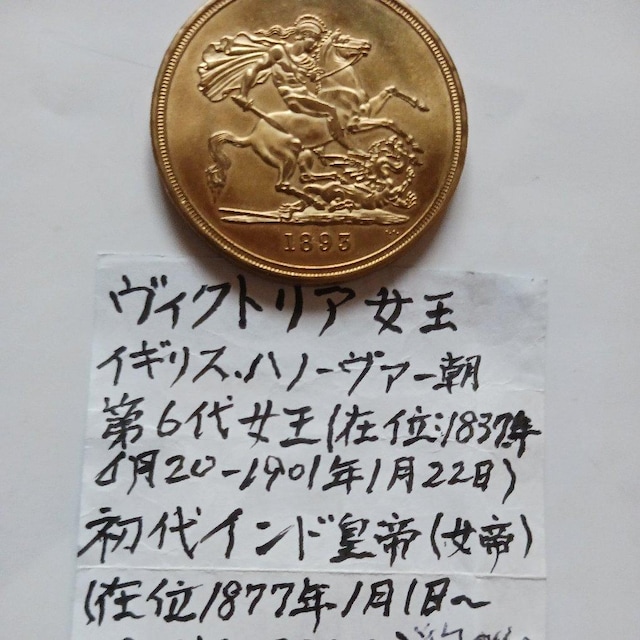 1893
ヴィクトリア女王
イギリス.ハノーヴァー朝
第6代女王(在位:1837年
6月20-1901年1月22日)
初代インド皇帝(女帝)
(在位1877年1月1日~